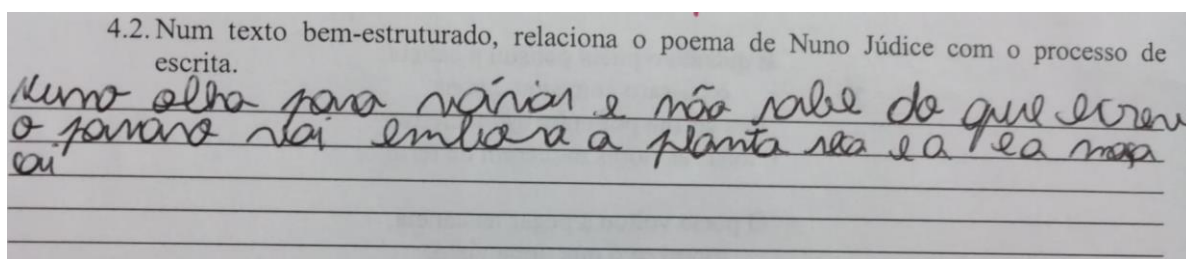 4.2. Num texto bem-estruturado, relaciona o poema de Nuno Júdice com o processo de
escrita.
Nuno olha para várias e não sabe do que escrev
o pássaro vai embora a planta seca e a maça
cai